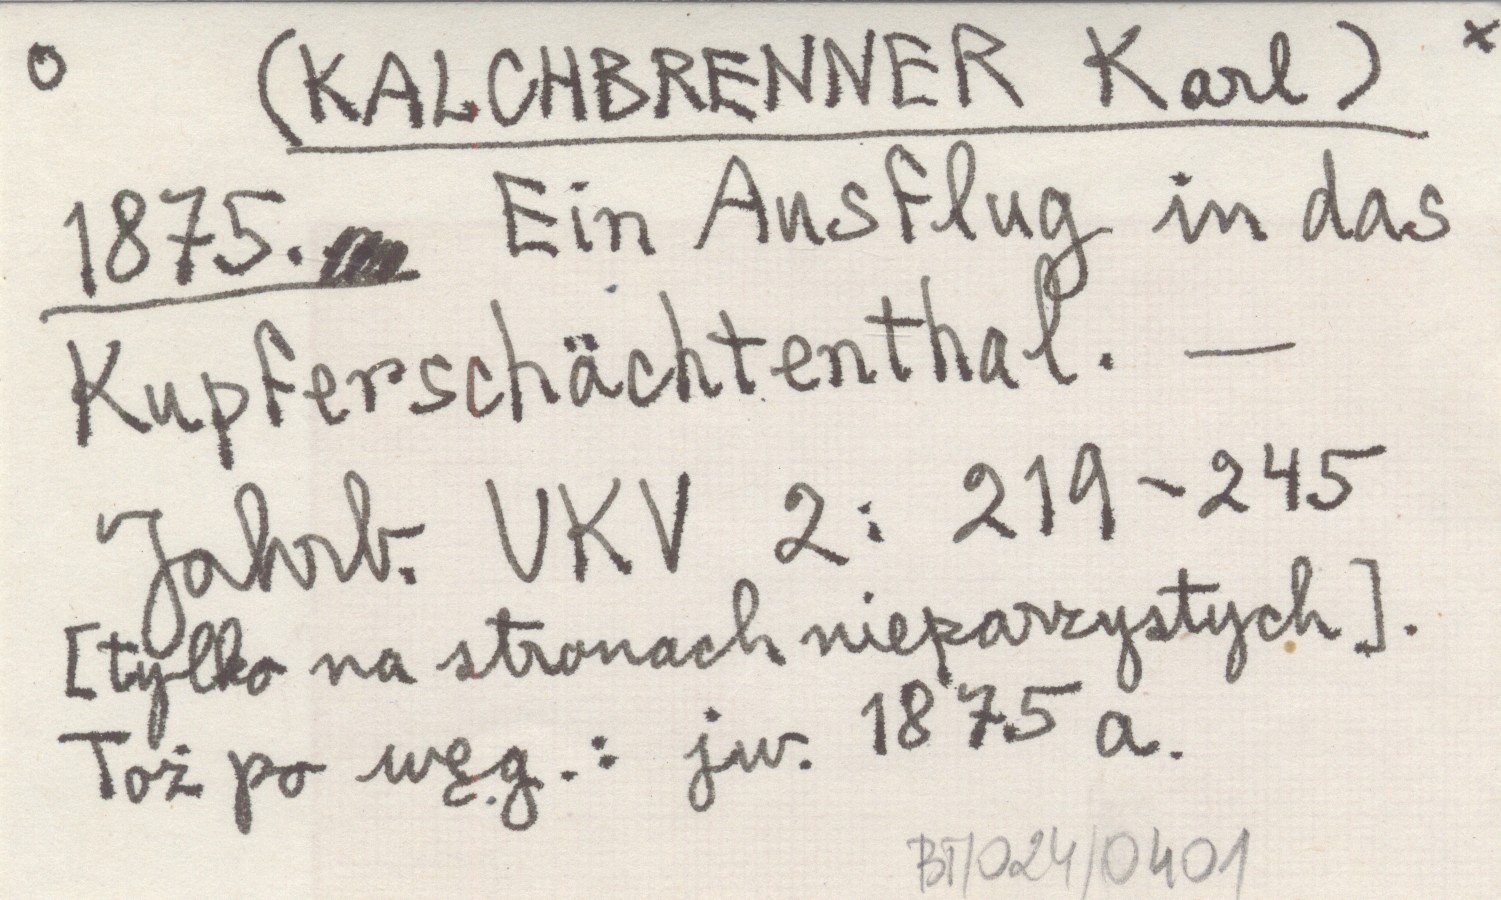 o (KALCHBRENNER Karl) x
1875. Ein Ausflug in das
Kupferschächtenthal. —
Jahrb. UKV 2: 219-245
[tylko na stronach nieparzystych].
Toż po węg.: jw. 1875 a.
BT/024/0401